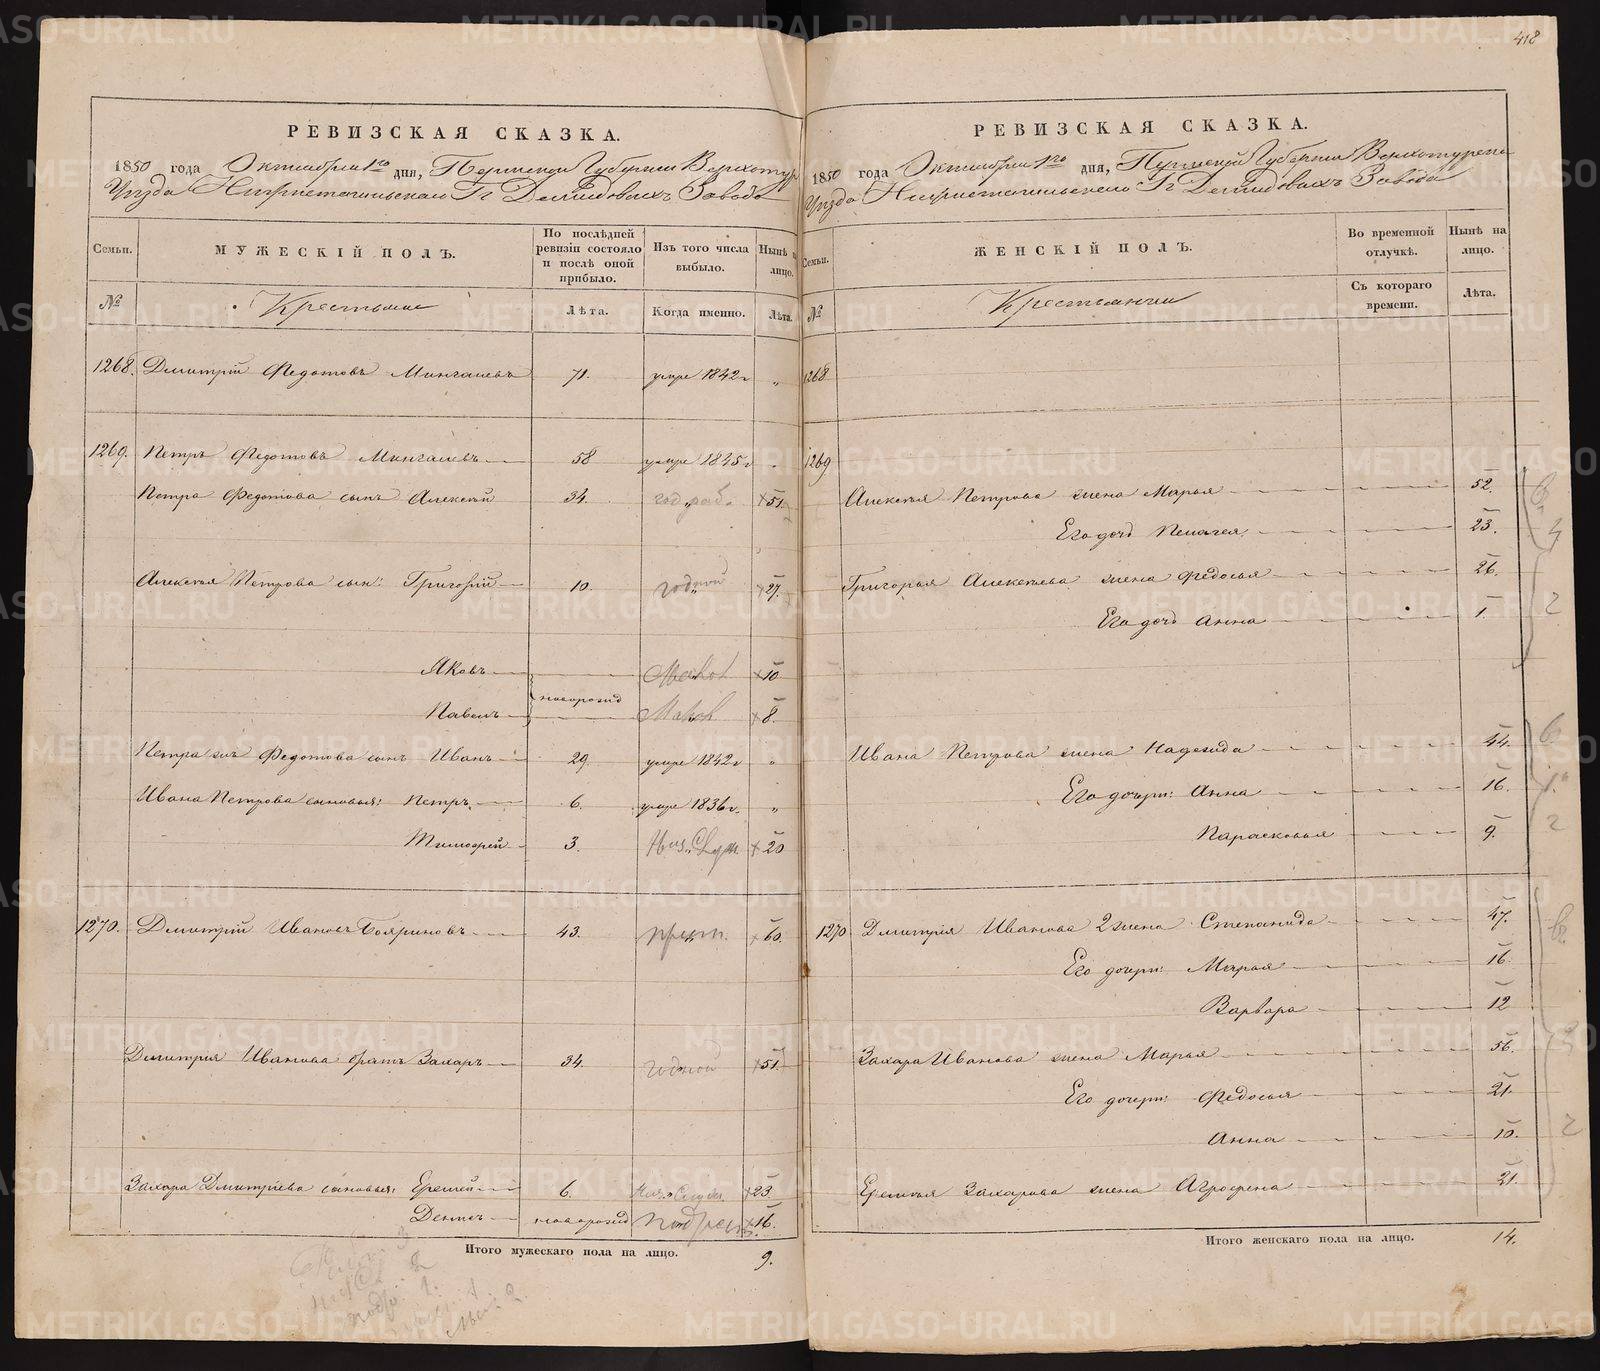 418
РЕВИЗСКАЯ СКАЗКА.
1850 года Октября 1го дня, Пермской Губернии Верхотур
Уезда Нижнетагильскаго Гг Демидовыхъ Завода
Семьи. МУЖЕСКІЙ ПОЛЪ. По послѣдней ревизіи состояло и послѣ оной прибыло. Изъ того числа выбыло. Нынѣ н лицо.
№ Крестьяне Лѣта. Когда именно. Лѣта.
1268. Дмитрій Федотовъ Мингалевъ 71. умре 1842г "
1269. Петръ Федотовъ Мингалевъ 58 умре 1845г "
Петра Федотова сынъ Алексѣй 34. год раб. 51.
Алексѣя Петрова сын: Григорій 10. годной 27.
Яковъ 10
новорожд
Павелъ 8.
Петра жъ Федотова сынъ Иванъ 29. умре 1842г "
Ивана Петрова сыновья: Петръ 6. умре 1836г. "
Тимофей 3. 20
1270. Дмитрій Ивановъ Бояриновъ 43. 60.
Дмитрія Иванова братъ Захаръ 34. годной 51.
Захара Дмитріева сыновья: Еремей 6. 23
Денисъ новорожд 16.
Итого мужескаго пола на лицо. 9.
РЕВИЗСКАЯ СКАЗКА.
1850 года Октября 1го дня, Пермской Губернии Верхотурска
Уезда Нижнетагильскаго Гг Демидовыхъ Завода
Семьи. ЖЕНСКІЙ ПОЛЪ. Во временной отлучкѣ. Нынѣ на лицо.
№ Крестьянки Съ котораго времени. Лѣта.
1268
1269
Алексѣя Петрова жена Марья 52.
Его дочь Пелагея 23.
Григорья Алексѣева жена Федосья 26.
Его дочь Анна 1.
Ивана Петрова жена Надежда 44.
Его дочери: Анна 16.
Парасковья 9.
1270 Дмитрія Иванова 2 жена Степанида 47.
Его дочери: Марья 16.
Варвара 12
Захара Иванова жена Марья 56.
Его дочери: Федосья 21.
Анна 10.
Еремѣя Захарова жена Агрофена 21.
Итого женскаго пола на лицо. 14.
METRIKI.GASO-URAL.RU